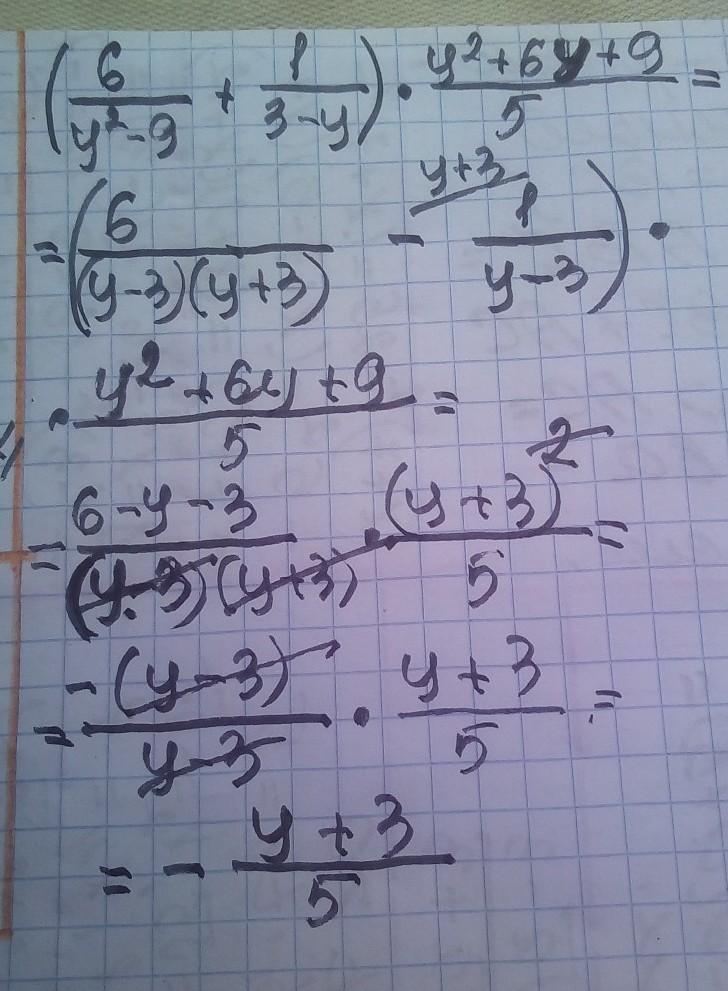 (6/(y²-9) + 1/(3-y)) · (y²+6y+9)/5 =
= (6/((y-3)(y+3)) - y+3 1/(y-3)) ·
· (y²+6y+9)/5 =
= (6-y-3)/((y-3)(y+3)) · (y+3)²/5 =
= -(y-3)/(y-3) · (y+3)/5 =
= - (y+3)/5